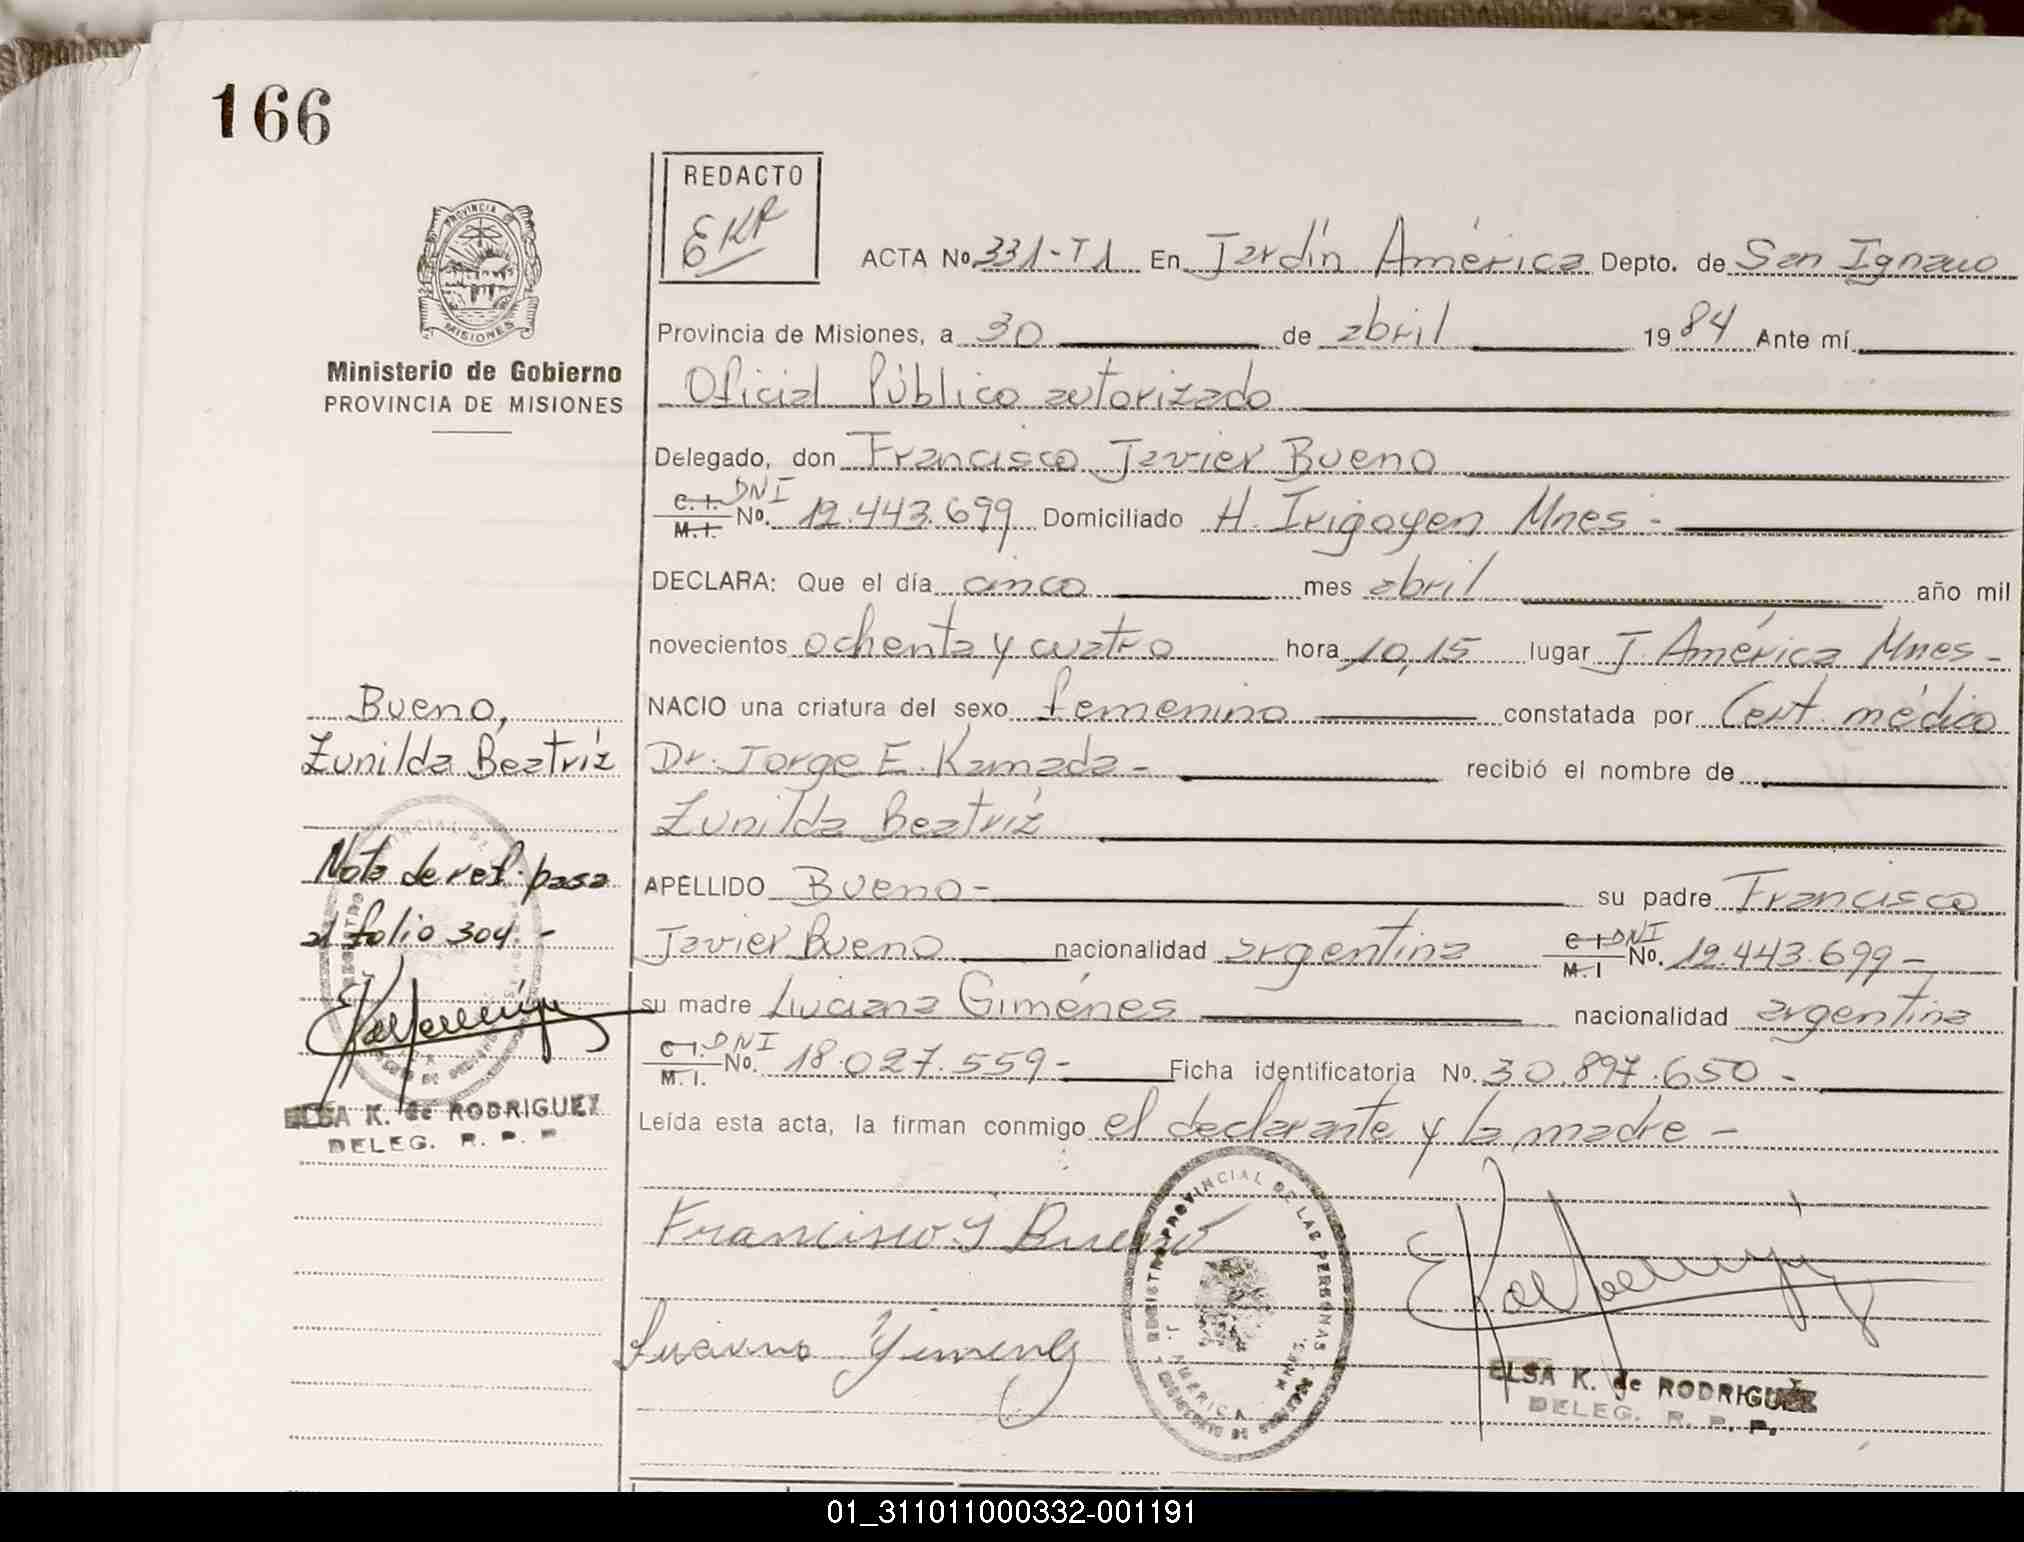 166
REDACTO
EKR
ACTA Nº 331-T1 En Jardín América Depto. de San Ignacio
PROVINCIA DE
MISIONES
Ministerio de Gobierno
PROVINCIA DE MISIONES
Provincia de Misiones, a 30 de abril 1984 Ante mí
Oficial Público autorizado
Delegado, don Francisco Javier Bueno
C. I. DNI
M. I. Nº. 12.443.699 Domiciliado H. Irigoyen Mnes -
DECLARA: Que el día cinco mes abril año mil
novecientos ochenta y cuatro hora 10,15 lugar J. América Mnes -
NACIO una criatura del sexo femenino constatada por Cert. médico
Dr. Jorge E. Kamada - recibió el nombre de
Zunilda Beatríz
APELLIDO Bueno - su padre Francisco
Javier Bueno nacionalidad argentina C I DNI M. I Nº. 12.443.699 -
su madre Luciana Giménes nacionalidad argentina
C I. DNI
M. I. Nº. 18.027.559 - Ficha identificatoria Nº. 30.897.650 -
Leída esta acta, la firman conmigo el declarante y la madre -
Bueno,
Zunilda Beatríz
Nota de ref. pasa
al folio 304. -
ELSA K. de RODRIGUEZ
DELEG. R. P. P.
Francisco J Bueno
Luciana Yimenez
REGISTRO PROVINCIAL DE LAS PERSONAS
J. AMERICA - MNES.
ELSA K. de RODRIGUEZ
DELEG. R. P. P.
01_311011000332-001191